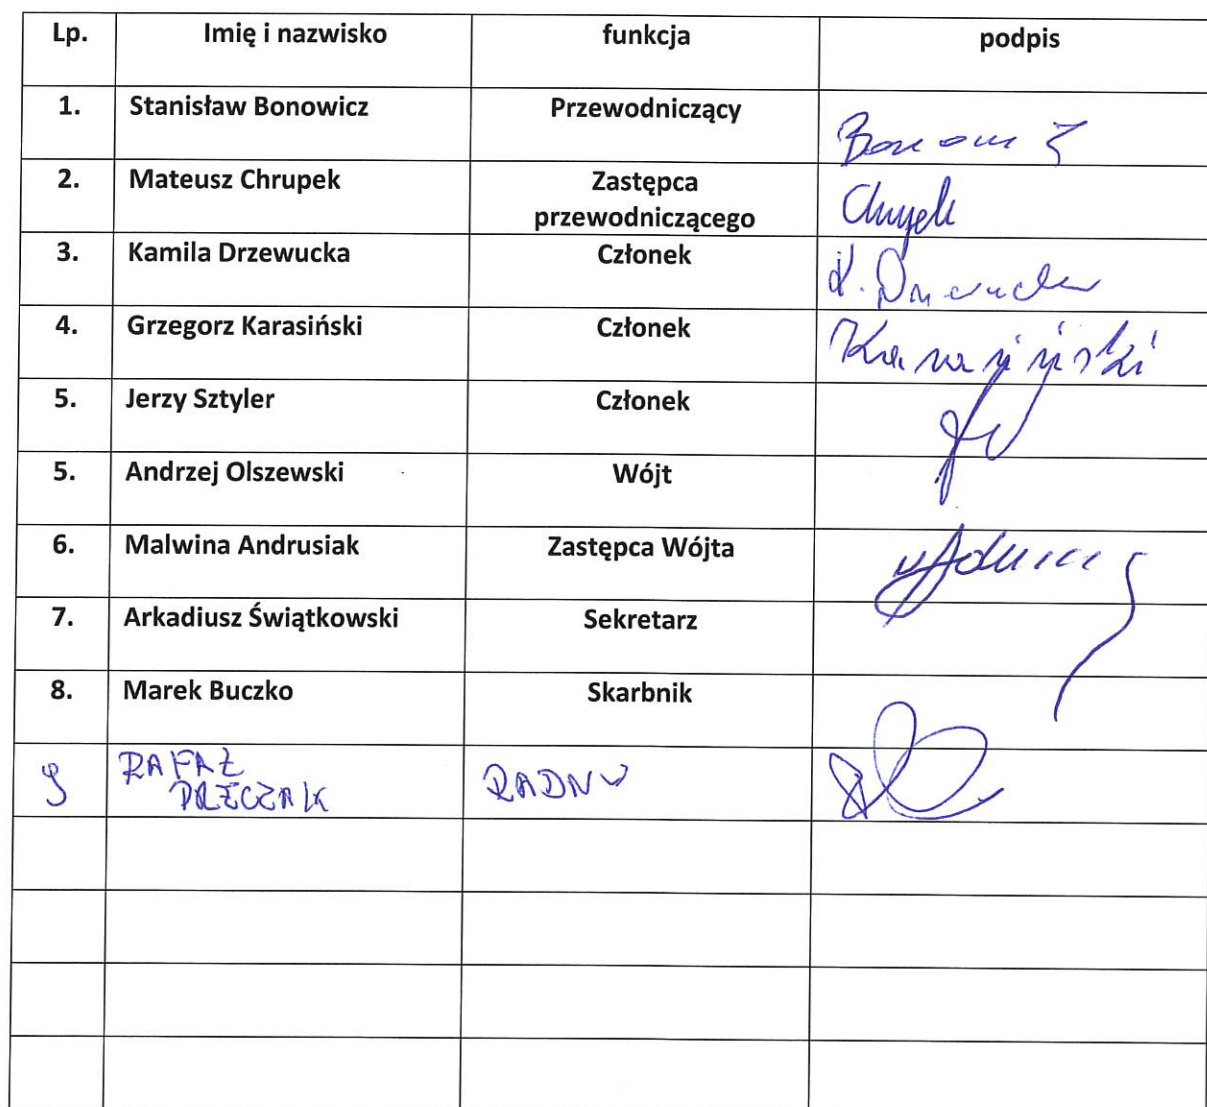 Lp. Imię i nazwisko funkcja podpis
1. Stanisław Bonowicz Przewodniczący
2. Mateusz Chrupek Zastępca
przewodniczącego
3. Kamila Drzewucka Członek K.
4. Grzegorz Karasiński Członek Karasiński
5. Jerzy Sztyler Członek
5. Andrzej Olszewski Wójt
6. Malwina Andrusiak Zastępca Wójta
7. Arkadiusz Świątkowski Sekretarz
8. Marek Buczko Skarbnik
9 RAFAŁ RADNY